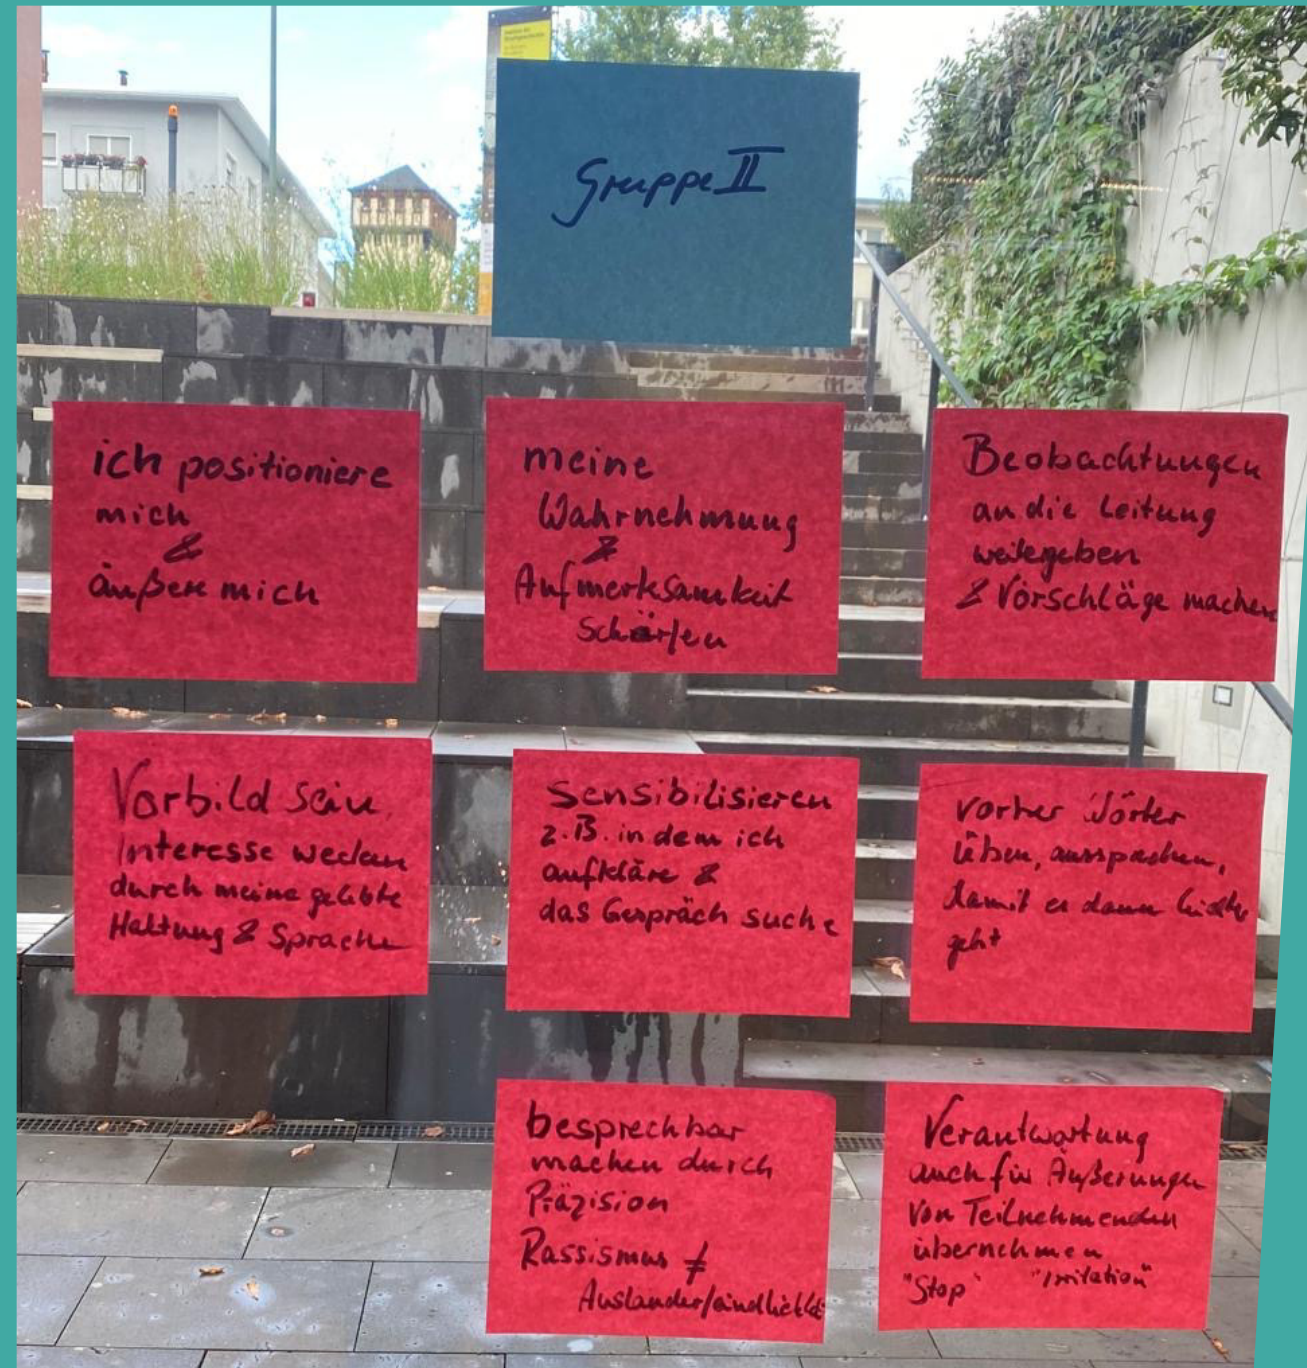 Gruppe II
ich positioniere
mich
&
äußere mich
meine
Wahrnehmung
&
Aufmerksamkeit
Schärfen
Beobachtungen
an die Leitung
weitergeben
& Vorschläge machen
Vorbild sein,
Interesse wecken
durch meine gelebte
Haltung & Sprache
Sensibilisieren
z.B. in dem ich
aufkläre &
das Gespräch suche
vorher Wörter
üben,
damit es dann leichter
geht
besprechbar
machen durch
Präzision
Rassismus ≠
Ausländerfeindlichkeit
Verantwortung
auch für Äußerungen
von Teilnehmenden
übernehmen
"Stop" "Irritation"